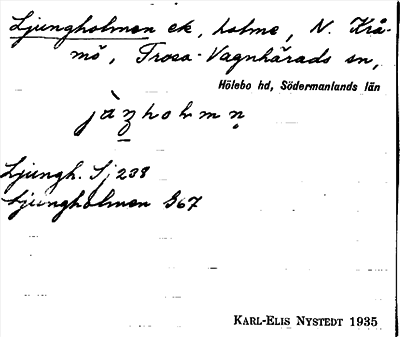 Ljungholmen ek, holme, N. Krå-
mö, Trosa-Vagnhärads sn,
Hölebo hd, Södermanlands län
jàŋholmn̥
Ljungh. Sj 238
Ljungholmen G67
KARL-ELIS NYSTEDT 1935